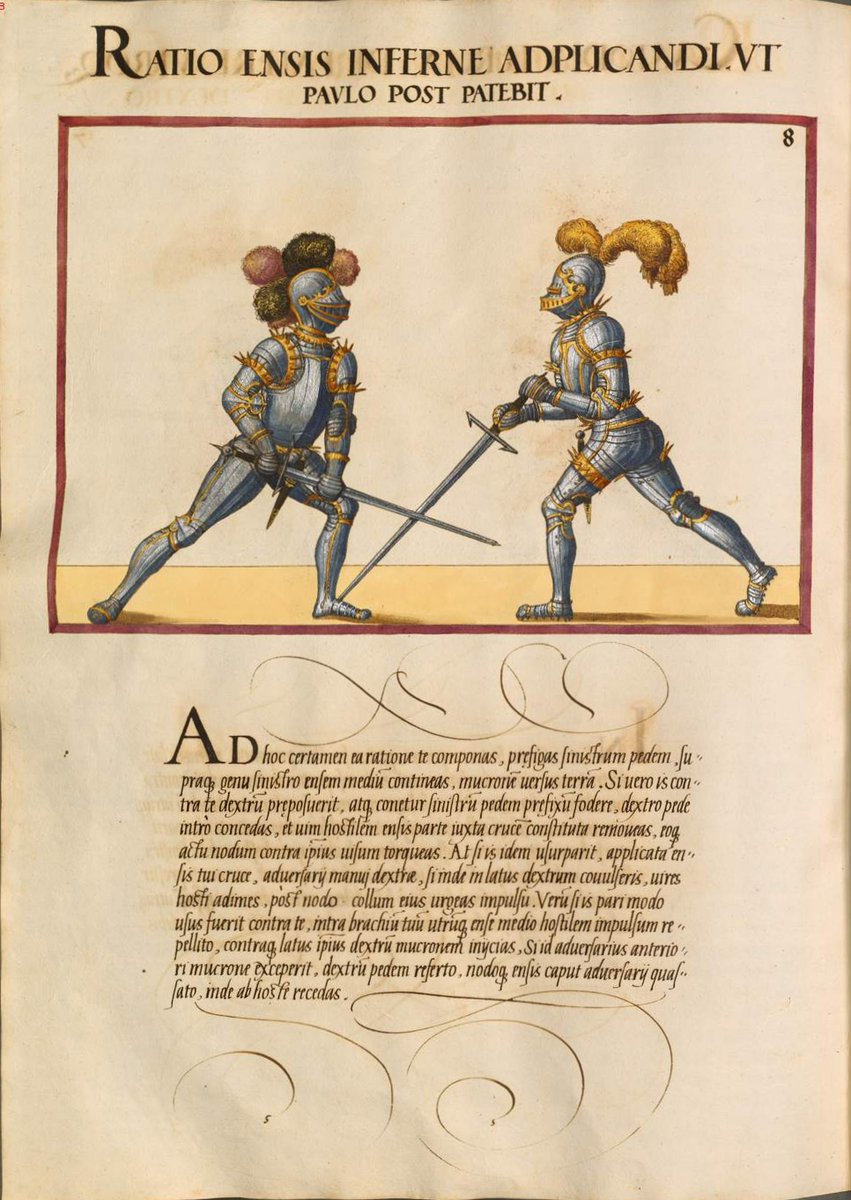 RATIO ENSIS INFERNE ADPLICANDI. VT
PAVLO POST PATEBIT.
8
AD hoc certamen ea ratione te componas, prefigas sinistrum pedem, su-
praq, genu sinistro ensem mediū contineas, mucronē versus terrā. Si vero is con-
tra te dextrū preposuerit, atq, conetur sinistrū pedem prefixū fodere, dextro pede
intrò concedas, et uim hostilem ensis parte iuxta crucē constituta remoueas, eoq,
actu nodum contra ipsius uisum torqueas. At si is idem usurparit, applicata en-
sis tui cruce, adversarij manuj dextræ, si inde in latus dextrum couulseris, uires
hosti adimes, pòst nodo collum eius urgeas impulsu. Verū si is pari modo
usus fuerit contra te, intra brachiū tuū utrūq, ense medio hostilem impulsum re-
pellito, contraq, latus ipsius dextrū mucronem inijcias, Si id adversarius anterio-
ri mucrone exceperit, dextrū pedem referto, nodoq, ensis caput adversarij quas-
sato, inde ab hoste recedas.
5
5